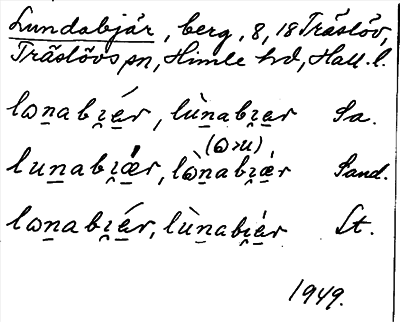 Lundabjär, berg, 8, 18 Träslöv,
Träslövs sn, Himle hd, Hall. l.
lωnabi̯ér, lùnabi̯er Sa.
(ω>u)
lunabi̯ǽr, lὼnabi̯ær Sand.
lωnabi̯ér, lùnabi̯ér St.
1949.